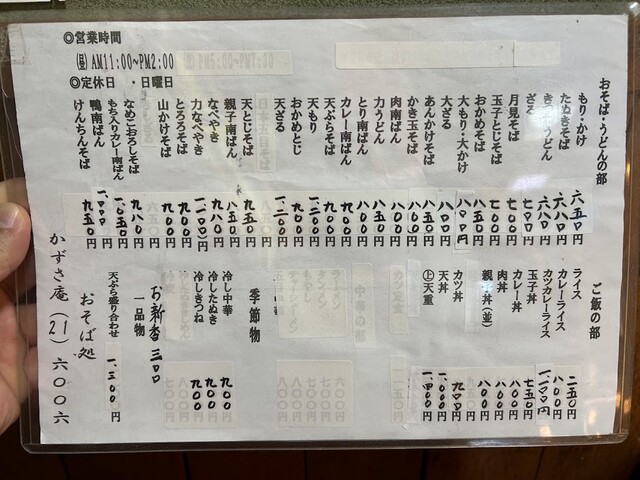 ◎営業時間
㊐AM11:00~PM2:00
◎定休日 ・日曜日
おそば・うどんの部
もり・かけ 六五〇円
たぬきそば 六八〇円
うどん 六八〇円
ざる 七〇〇円
月見そば 七〇〇円
玉子とじそば 八〇〇円
おかめそば 八五〇円
大もり・大かけ 八〇〇円
大ざる 八〇〇円
あんかけそば 八五〇円
かき玉そば 八〇〇円
肉南ばん 八〇〇円
力うどん 八五〇円
とり南ばん 八〇〇円
カレー南ばん 九〇〇円
天ぷらそば 九〇〇円
天もり 一、二〇〇円
おかめとじ 九〇〇円
天ざる 一、二〇〇円
天とじそば 九五〇円
親子南ばん 八五〇円
なべやき 九八〇円
力なべやき 一、一〇〇円
とろろそば 九〇〇円
山かけそば 九〇〇円
なめこおろしそば 九八〇円
もち入りカレー南ばん 一、〇五〇円
鴨南ばん 一、〇〇〇円
けんちんそば 九五〇円
ご飯の部
ライス 二五〇円
カレーライス 八〇〇円
カツカレーライス 一、一〇〇円
玉子丼 七五〇円
カレー丼 八〇〇円
肉丼 八〇〇円
親子丼(並) 八〇〇円
カツ丼 九〇〇円
天丼 一、〇〇〇円
㊤天重 一、四〇〇円
季節物
冷し中華 九〇〇
冷したぬき 九〇〇
冷しきつね 九〇〇
お新香 三〇〇
一品物
天ぷら盛り合わせ 一、三〇〇円
おそば処
かずさ庵(21)六〇〇六